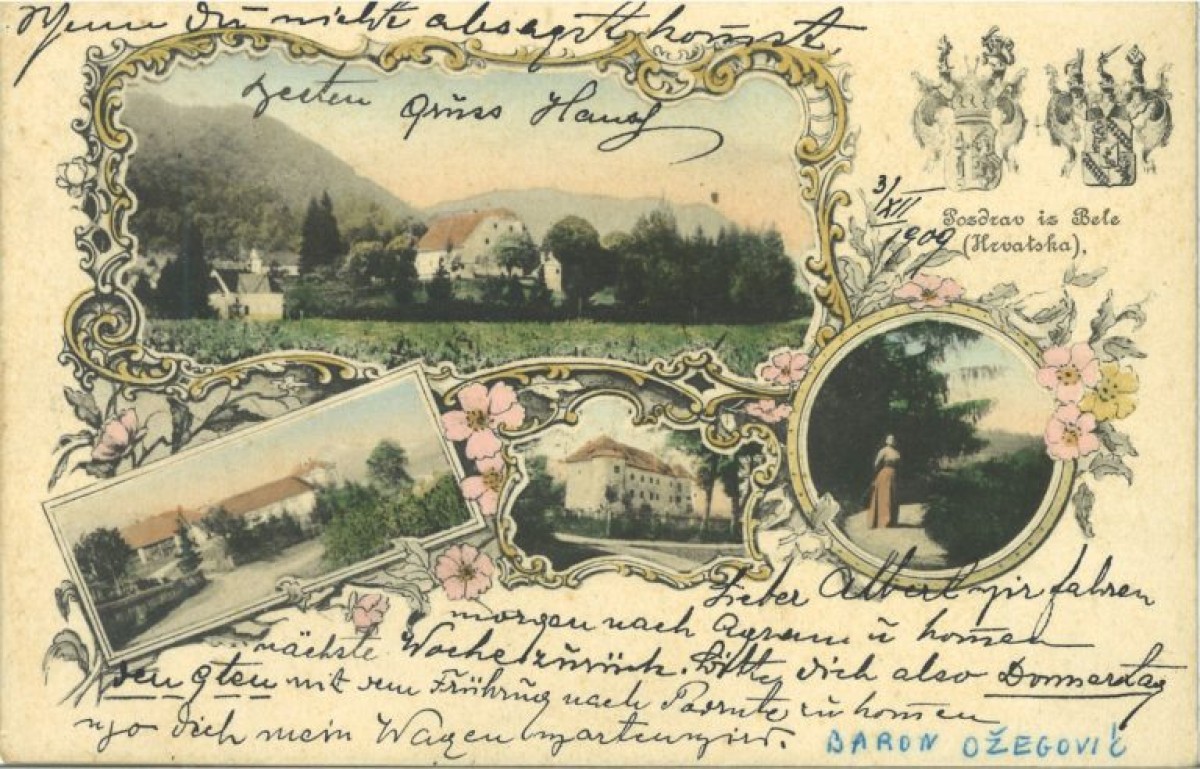 Wenn du nichts absagst kommst
besten Gruss Hans
3/XII
1909
Pozdrav iz Bele
(Hrvatska).
Lieber Albert wir fahren
morgen nach Agram u kom̄en
nächste Woche zurück. Bitte dich also Donnerstag
den 9ten mit dem Frühzug nach zu kom̄en
wo dich mein Wagen warten wird.
BARON OŽEGOVIĆ